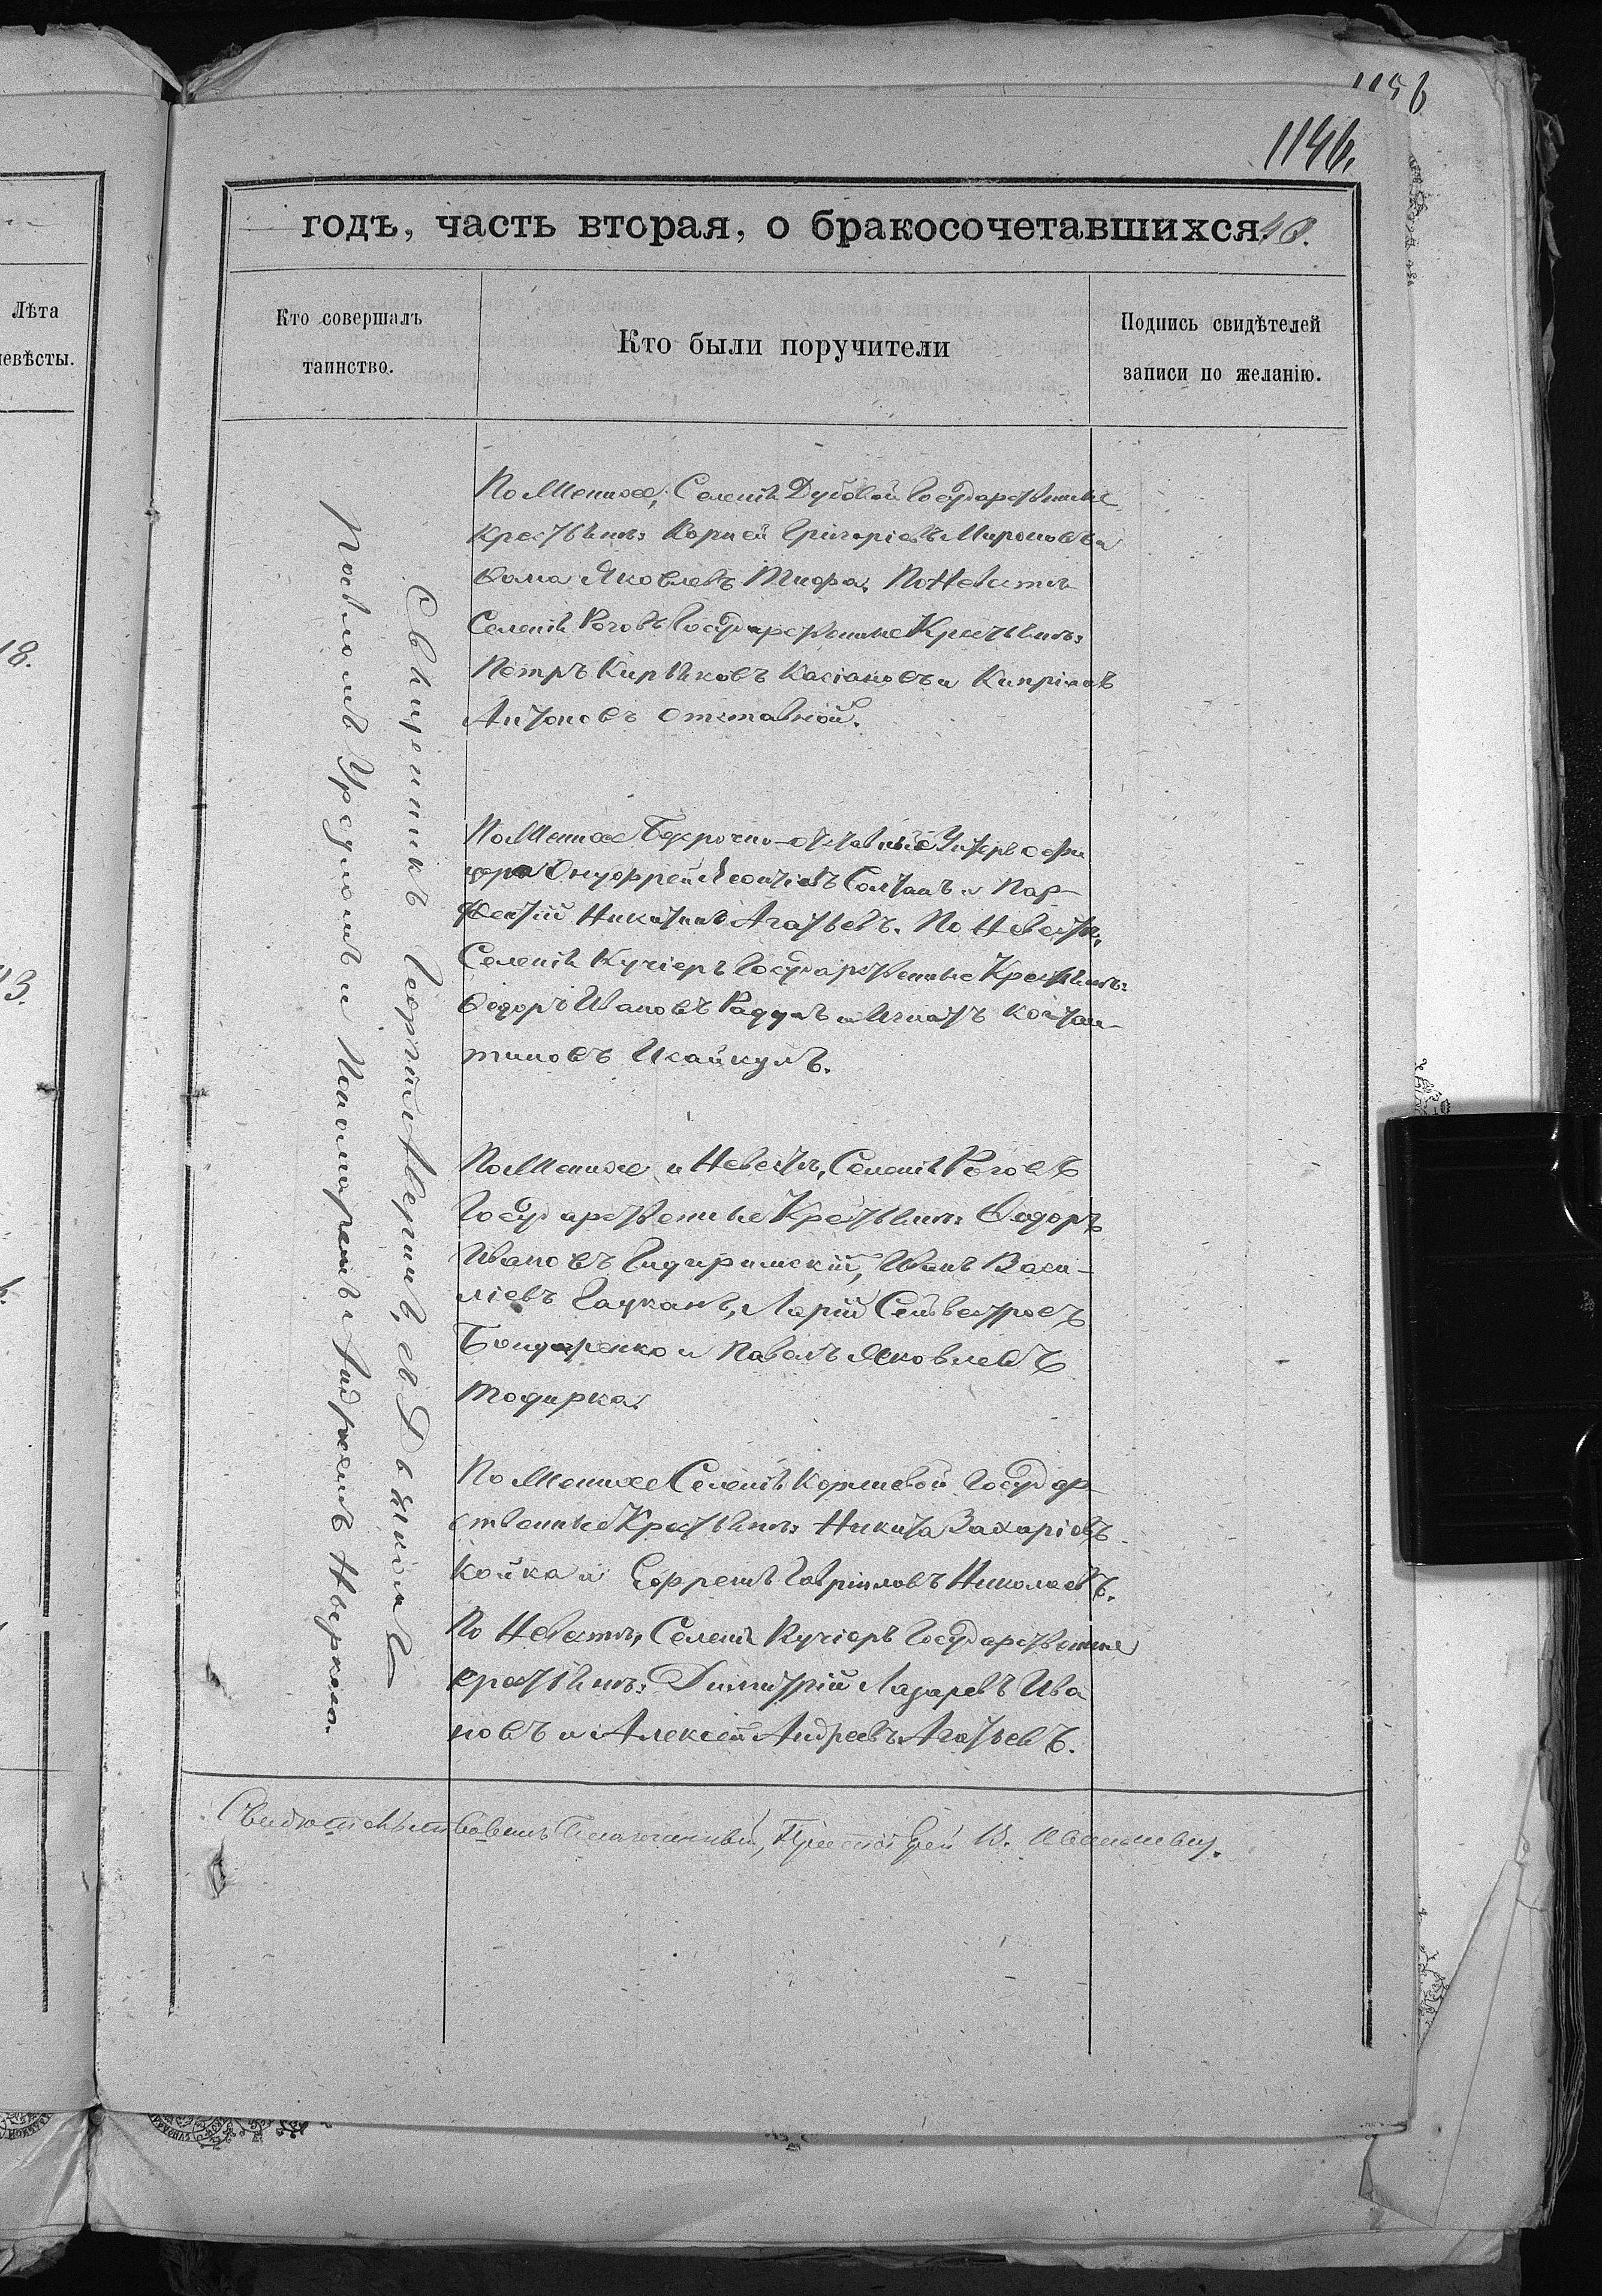 1146.
годъ, часть вторая, о бракосочетавшихся
Лѣта
невѣсты.
18.
Кто совершалъ
таинство.
Кто были поручители
Подпись свидѣтелей
записи по желанію.
Священникъ Георгій Аверинъ, съ Дьякомъ
Павломъ и Пономаремъ Андреемъ
По Женихе, Селенія Дубовой Государственные
Крестьяне: Корней Григоріевъ Мироновъ и
Ѳома Яковлевъ По Невестѣ
Селенія Роговъ Государственные Крестьяне:
Петръ Киріяковъ Касіановъ и Кипріанъ
Антоновъ Отставной.
По Женихе Безсрочно-отставные Унтеръ офи
цера Онуфрей Леонтіевъ Солтанъ и Пар-
фентій Никитинъ Агатьевъ. По Невестѣ,
Селенія Кучіеръ Государственные Крестьяне:
Ѳедоръ Ивановъ Радулъ и Игнатъ Констан-
тиновъ
По Женихе и Невестѣ, Селенія Роговъ
Государственные Крестьяне: Ѳедоръ
Ивановъ Гидиримскій, Иванъ Васи-
ліевъ Гацканъ, Ларій Селивестровъ
Бондаренко и Павелъ Яковлевъ
Тодирка.
По Женихе Селенія Коржевой Государ
ственные Крестьяне: Никита Захаріевъ
Койка и Ефремъ Гавріиловъ Николаевъ.
По Невестѣ, Селенія Кучіеръ Государственные
крестьяне: Димитрій Лазаревъ Ива
новъ и Алексей Андреевъ Агатьевъ.
Свидѣтельствовалъ Благочинный, Протоіерей